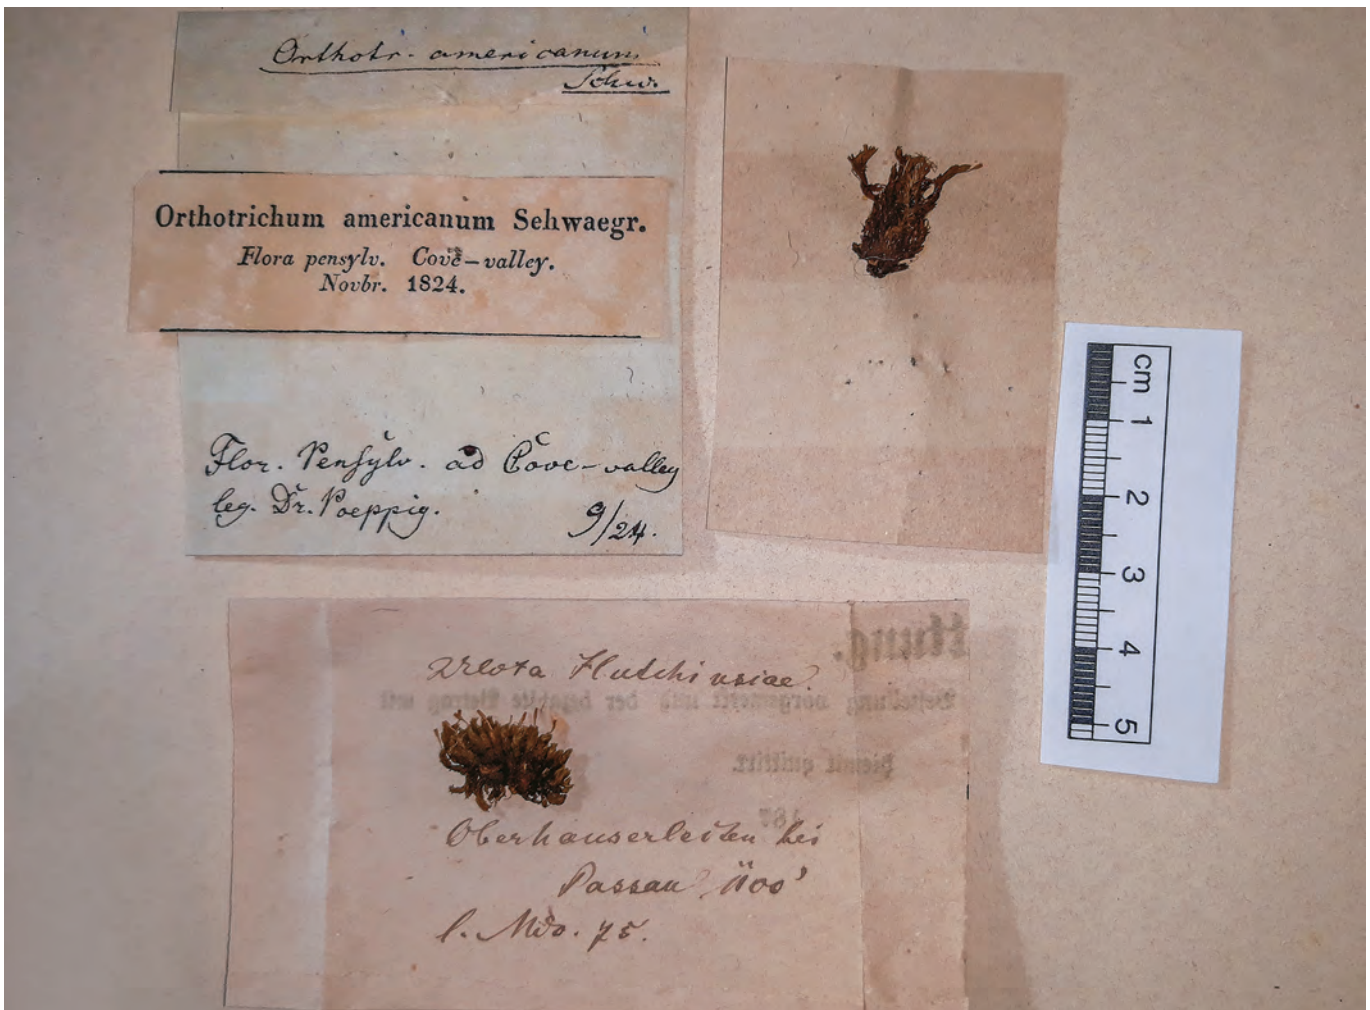 Orthotr. americanum
Schw.
Orthotrichum americanum Schwaegr.
Flora pensylv. Cove-valley.
Novbr. 1824.
Flor. Pensylv. ad Cove-valley
leg. Dr. Poeppig.
9/24.
cm
1
2
3
4
5
Ulota Hutchinsiae.
Oberhauserleiten bei
Passau 1100'
l. Mdo. 75.
187